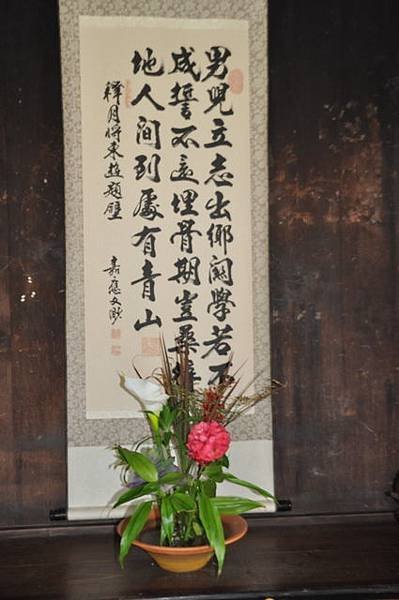 男兒立志出鄉關學若不
成誓不還埋骨期豈桑梓
地人间到處有青山
釋月將東遊題壁
嘉應文